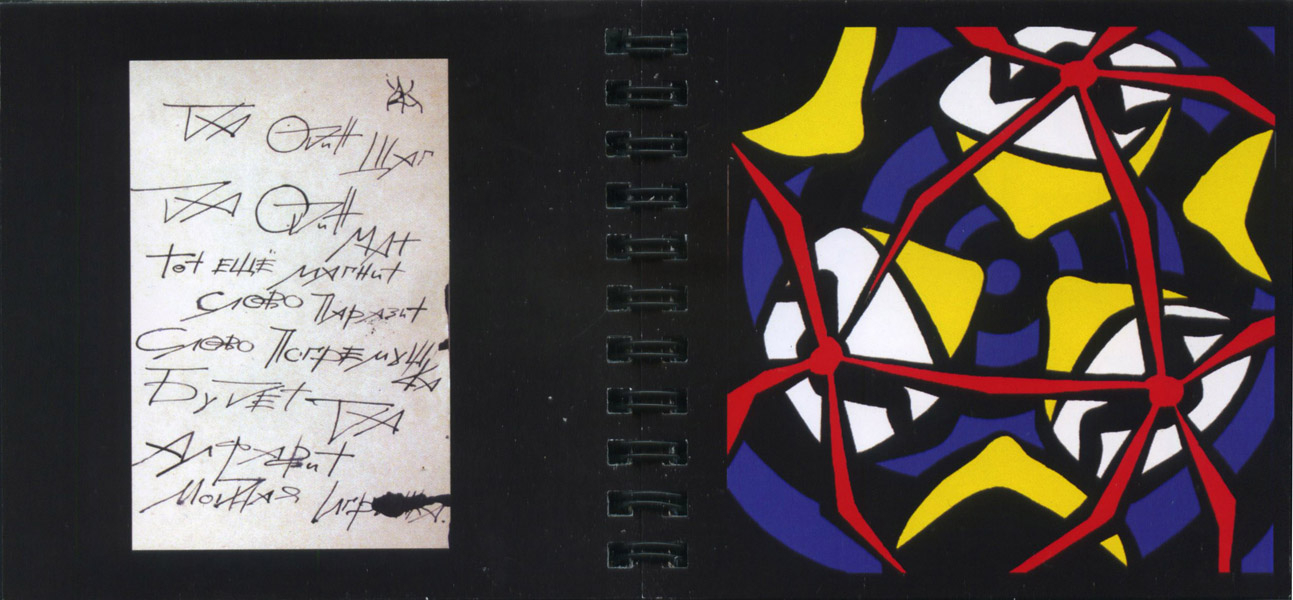 ДА ОДиН ШАГ
ДА ОДиН
МАТ
ТОТ ЕЩЁ МАГНиТ
СЛОВО ПАРАЗиТ
СЛОВО ПОГРЕМУШ
КА
БУДЕТ ДА
АЛФАВиТ